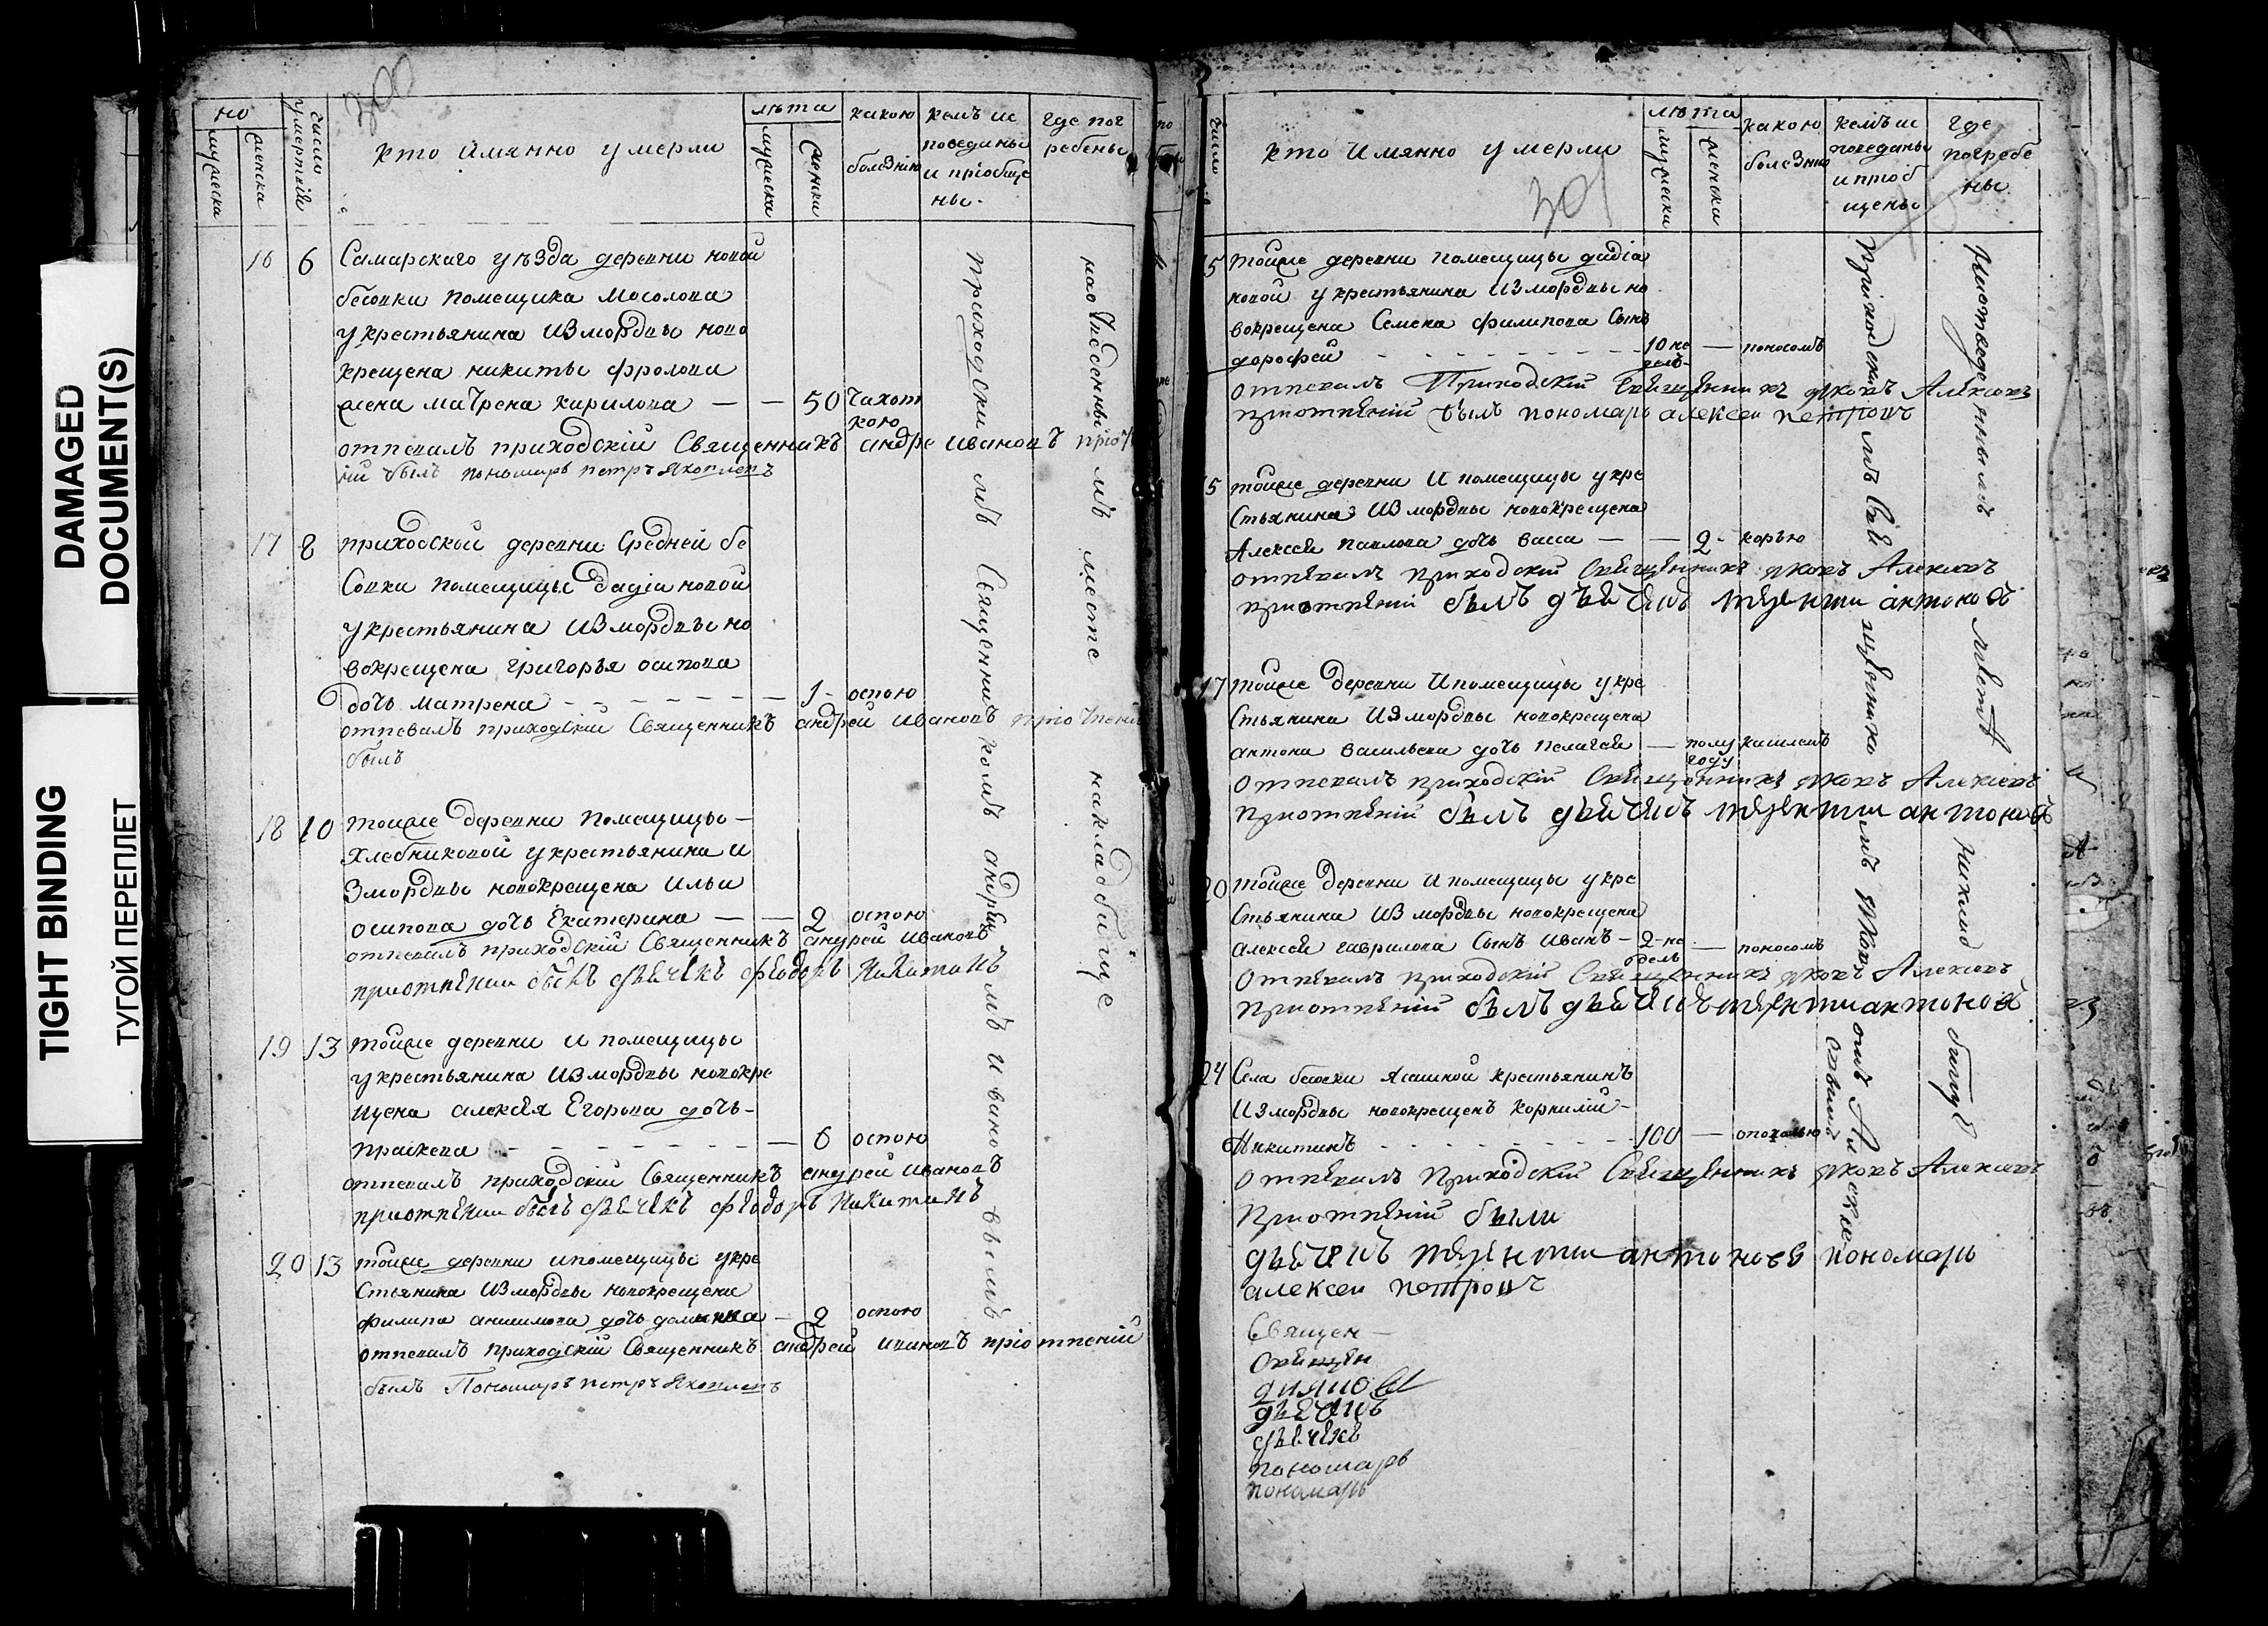 DAMAGED
DOCUMENT(S)
TIGHT BINDING
ТУГОЙ ПЕРЕПЛЕТ
300
но
мужеска
женска
число
умертвій
кто имянно умерли
лѣта
мужеска
женска
какою
болезнію
кемъ ис
поведаны
и пріобще
ны
где пог
ребены
16 6 Самарскаго уѣзда деревни новой
бесовки помещика Мосолова
у крестьянина из мордвы ново
крещена никиты фролова
жена матрена кирилова — — 50 чахот
кою
отпевалъ приходскій Священникъ андре ивановъ
ній былъ пономарь петръ Яковлевъ
17 8 приходской деревни Средней бе
Совки помещицы дадіановой
у крестьянина из мордвы но
вокрещена григорья осипова
дочь матрена — 1 - оспою
отпевалъ приходскій Священникъ андрей ивановъ
былъ
18 10 тойже деревни помещицы —
хлебниковой у крестьянина и
з мордвы новокрещена ильи
осипова дочь Екатерина — — 2 оспою
отпевалъ приходскій Священникъ андрей ивановъ
приотпении былъ дьячекъ феодоръ Никитинъ
19 13 тойже деревни и помещицы
у крестьянина из мордвы новокре
щена алексѣя Егорова дочь -
праскева — 6 оспою
отпевалъ приходскій Священникъ андрей ивановъ
приотпении былъ дьячекъ феодоръ Никитинъ
20 13 тойже деревни и помещицы у кре
Стьянина из мордвы новокрещена
филипа анисимова дочь домника — 2 оспою
отпевалъ приходскій Священникъ андрей ивановъ пріотпеній
былъ Пономарь петръ Яковлевъ
приходскимъ Священникомъ андреемъ ивановымъ
на отведенномъ месте на кладбище
число
кто имянно умерли
301
лѣта
мужески
женска
какою
болезнию
кемъ ис
поведаны
и приоб
щены
где
погребе
ны
5 тойже деревни помещицы дадіа
новой у крестьянина из мордвы но
вокрещена Семена филипова Сынъ
дорофей — 10 не
дель — поносомъ
отпевалъ Приходскій Священникъ яковъ Алексѣевъ
приотпѣній былъ пономарь алексеи петровъ
5 тойже деревни и помещицы у кре
Стьянина из мордвы новокрещена
Алексея павлова дочь васса — — 2 - корью
отпевалъ приходскій Священникъ яковъ Алексѣевъ
приотпѣній былъ дьячекъ терентии антоновъ
17 тойже деревни и помещицы у кре
Стьянина из мордвы новокрещена
антона васильева дочь пелагея — полу
году кашлемъ
отпевалъ приходскій Священникъ яковъ Алексѣевъ
приотпѣній былъ дьячекъ терентии антоновъ
20 тойже деревни и помещицы у кре
Стьянина из мордвы новокрещена
алексея гаврилова Сынъ иванъ — 2 - не
дель — поносомъ
отпевалъ приходскій Священникъ яковъ Алексѣевъ
приотпѣній былъ дьячекъ терентии антоновъ
24 Села бесовки Ясашной крестьянинъ
из мордвы новокрещенъ корнилій -
Никитинъ — 100 —
отпевалъ Приходскій Священникъ яковъ Алексѣевъ
Приотпѣній были
дьячекъ терентии антоновъ пономарь
алексеи петровъ
Священ —
Священ
дьячекъ
дьячекъ
пономарь
пономарь